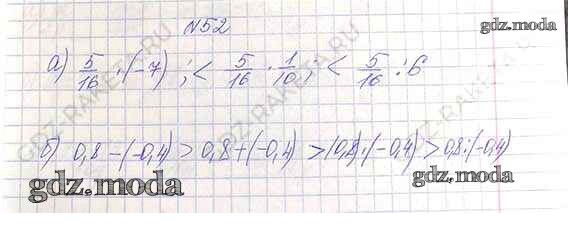 №52
gdz.moda
а) 5/16 : (-7) ; < 5/16 · 1/10 ; < 5/16 : 6
б) 0,8 - (-0,4) > 0,8 + (-0,4) > (0,8) · (-0,4) > 0,8 : (-0,4)
gdz.moda
gdz.moda
GDZ-RAKETA.RU